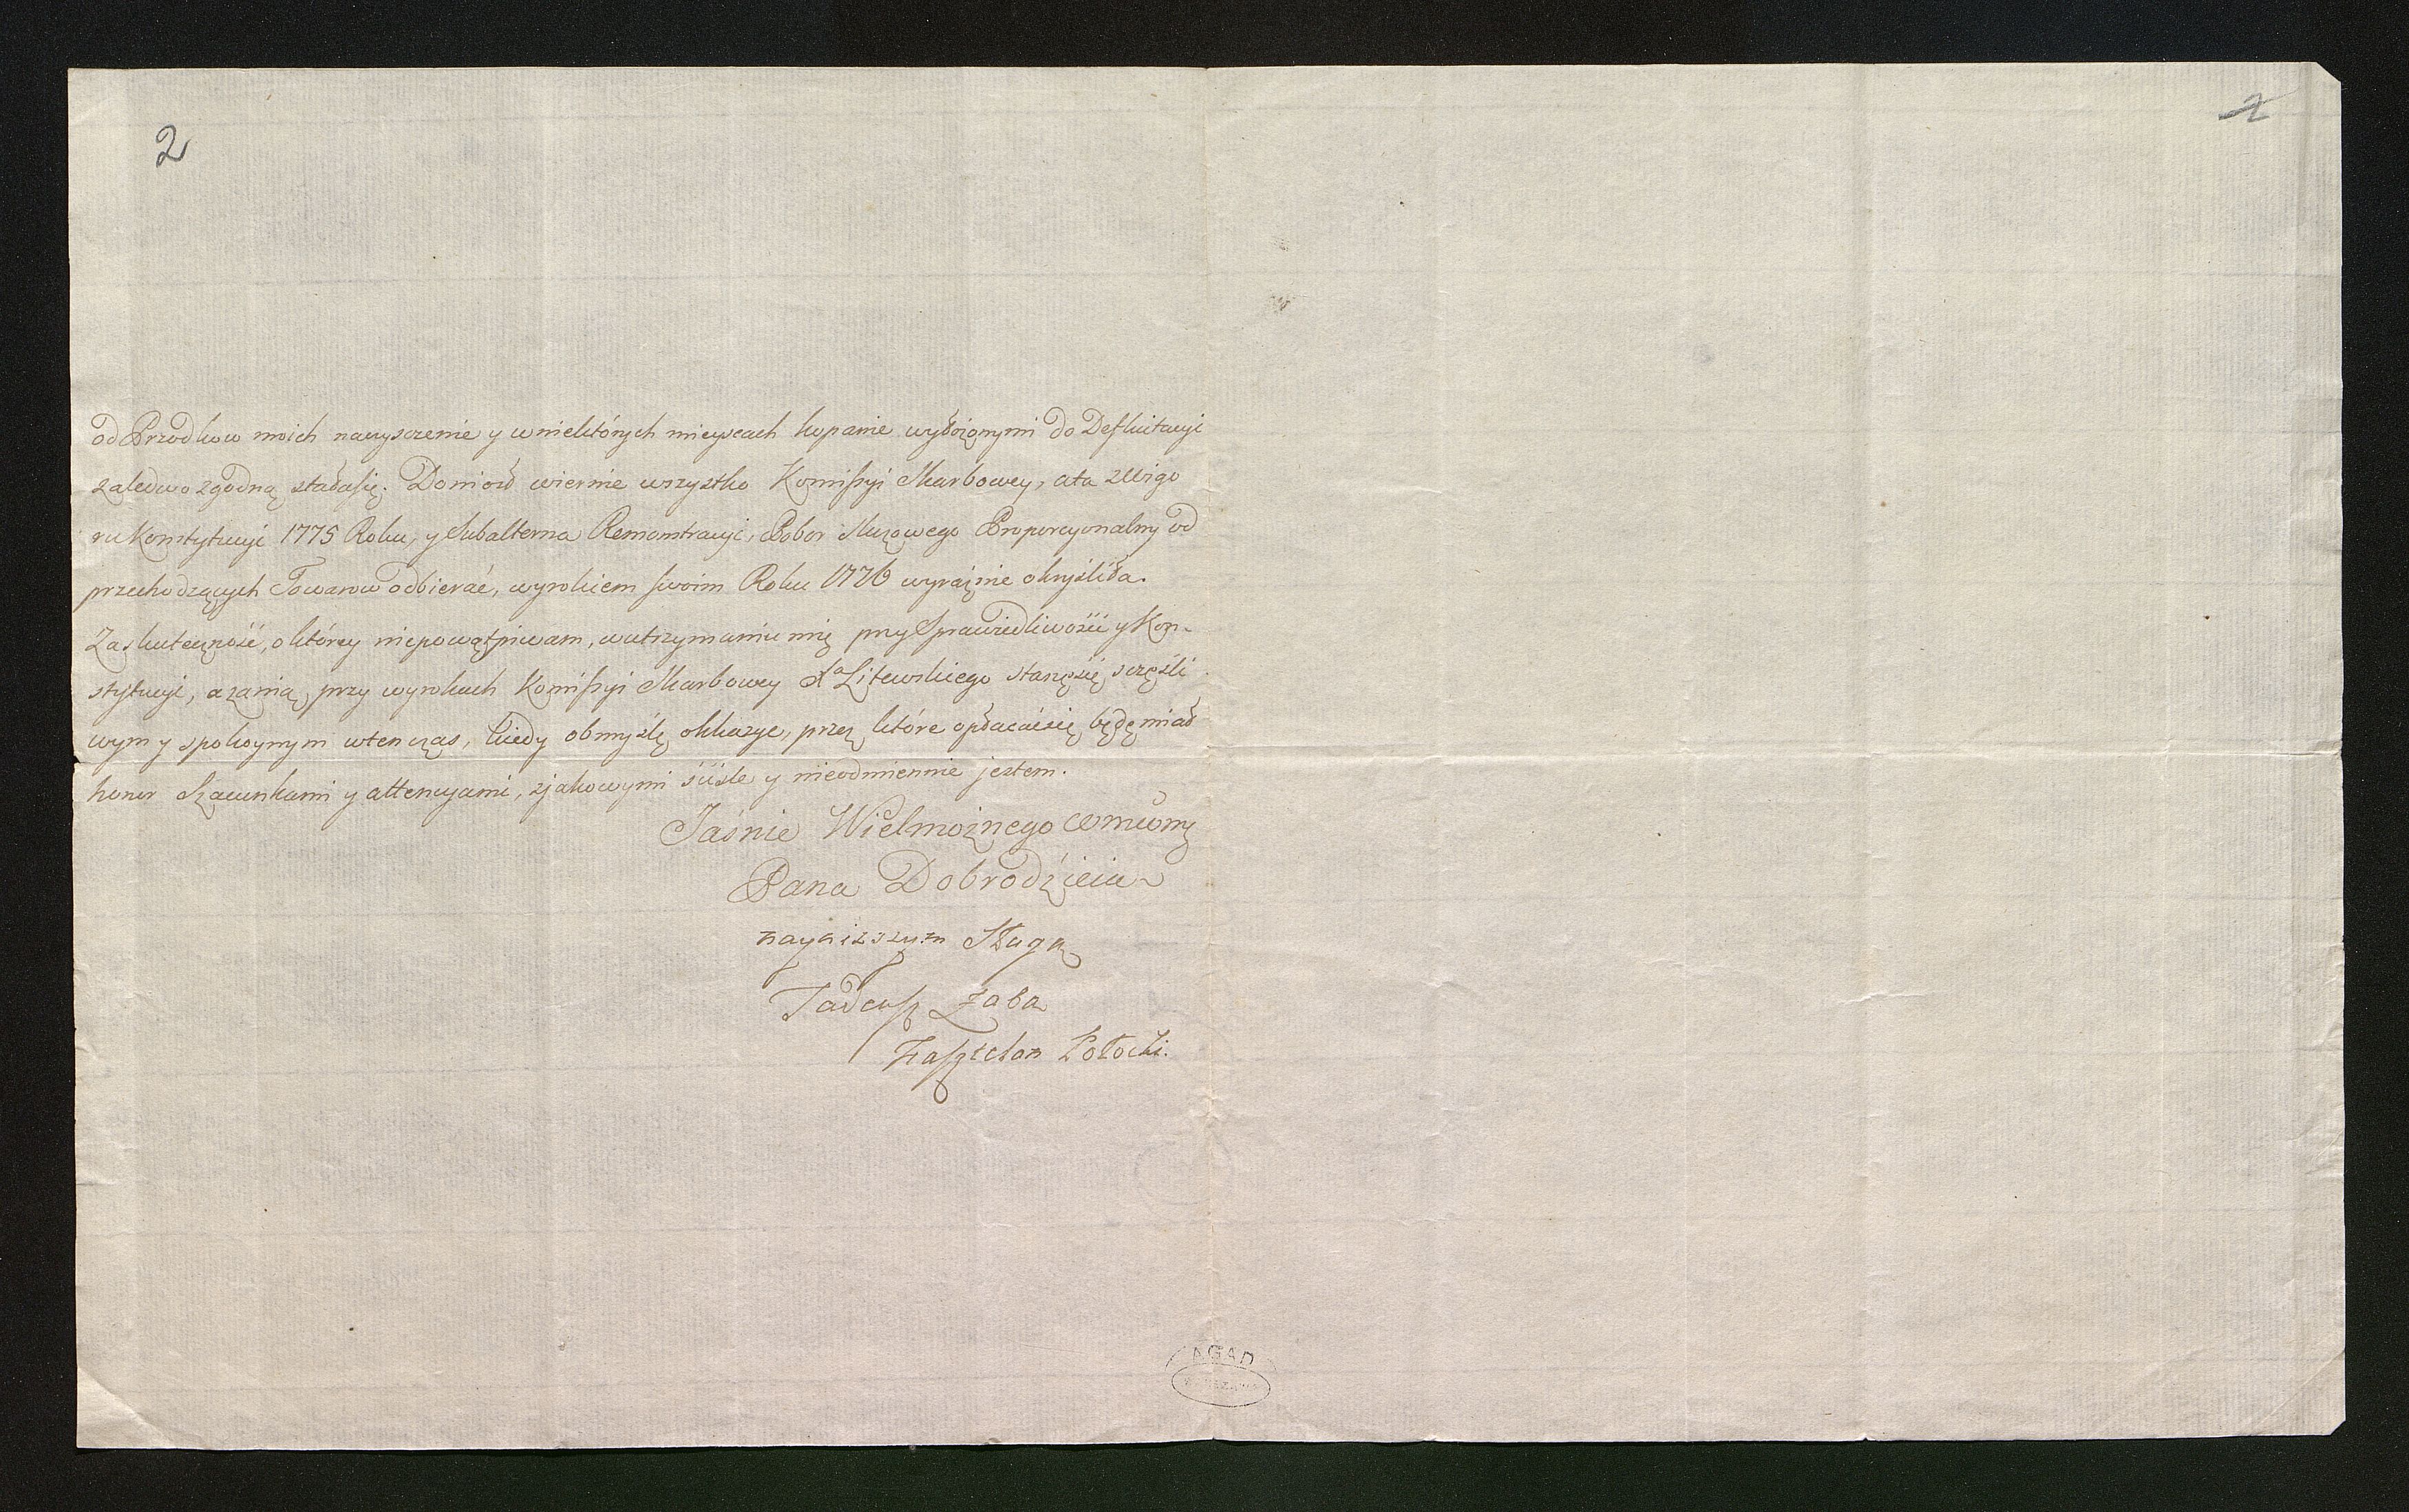 2
2
od Przodkow moich naczysczenie y wniektórych mieyscach kopanie wyłożonymi do Defluitacyi
zaledwo zgodną stałasię. Doniosł wiernie wszystko Komissyi Skarbowey, ata zWigo
ru Konstytucyi 1775 Roku, y Subalterna Remonstracyi, Pobor Sluzowego Proporcyonalny od
przechodzących Towarow odbierać, wyrokiem swoim Roku 1776 wyraźnie okryśliła.
Zaskuteczność, októrey niepowątpiwam, wutrzymaniu mię przy Sprawiedliwości y Kon-
stytucyi, azanią przy wyrokach Komissyi Skarbowey Litewskiego stanęsię sczęśli
wym y spokoynym wtenczas, kiedy obmyślę okkazye, przez które opłacaćsię będę miał
honor Szacunkami y attencyami, zjakowymi ściśle y nieodmiennie jestem.
Jaśnie Wielmożnego
Pana Dobrodzieia
nayniższym Sługą
Tadeusz Zaba
Kasztelan Połocki.
AGAD
WARSZAWA